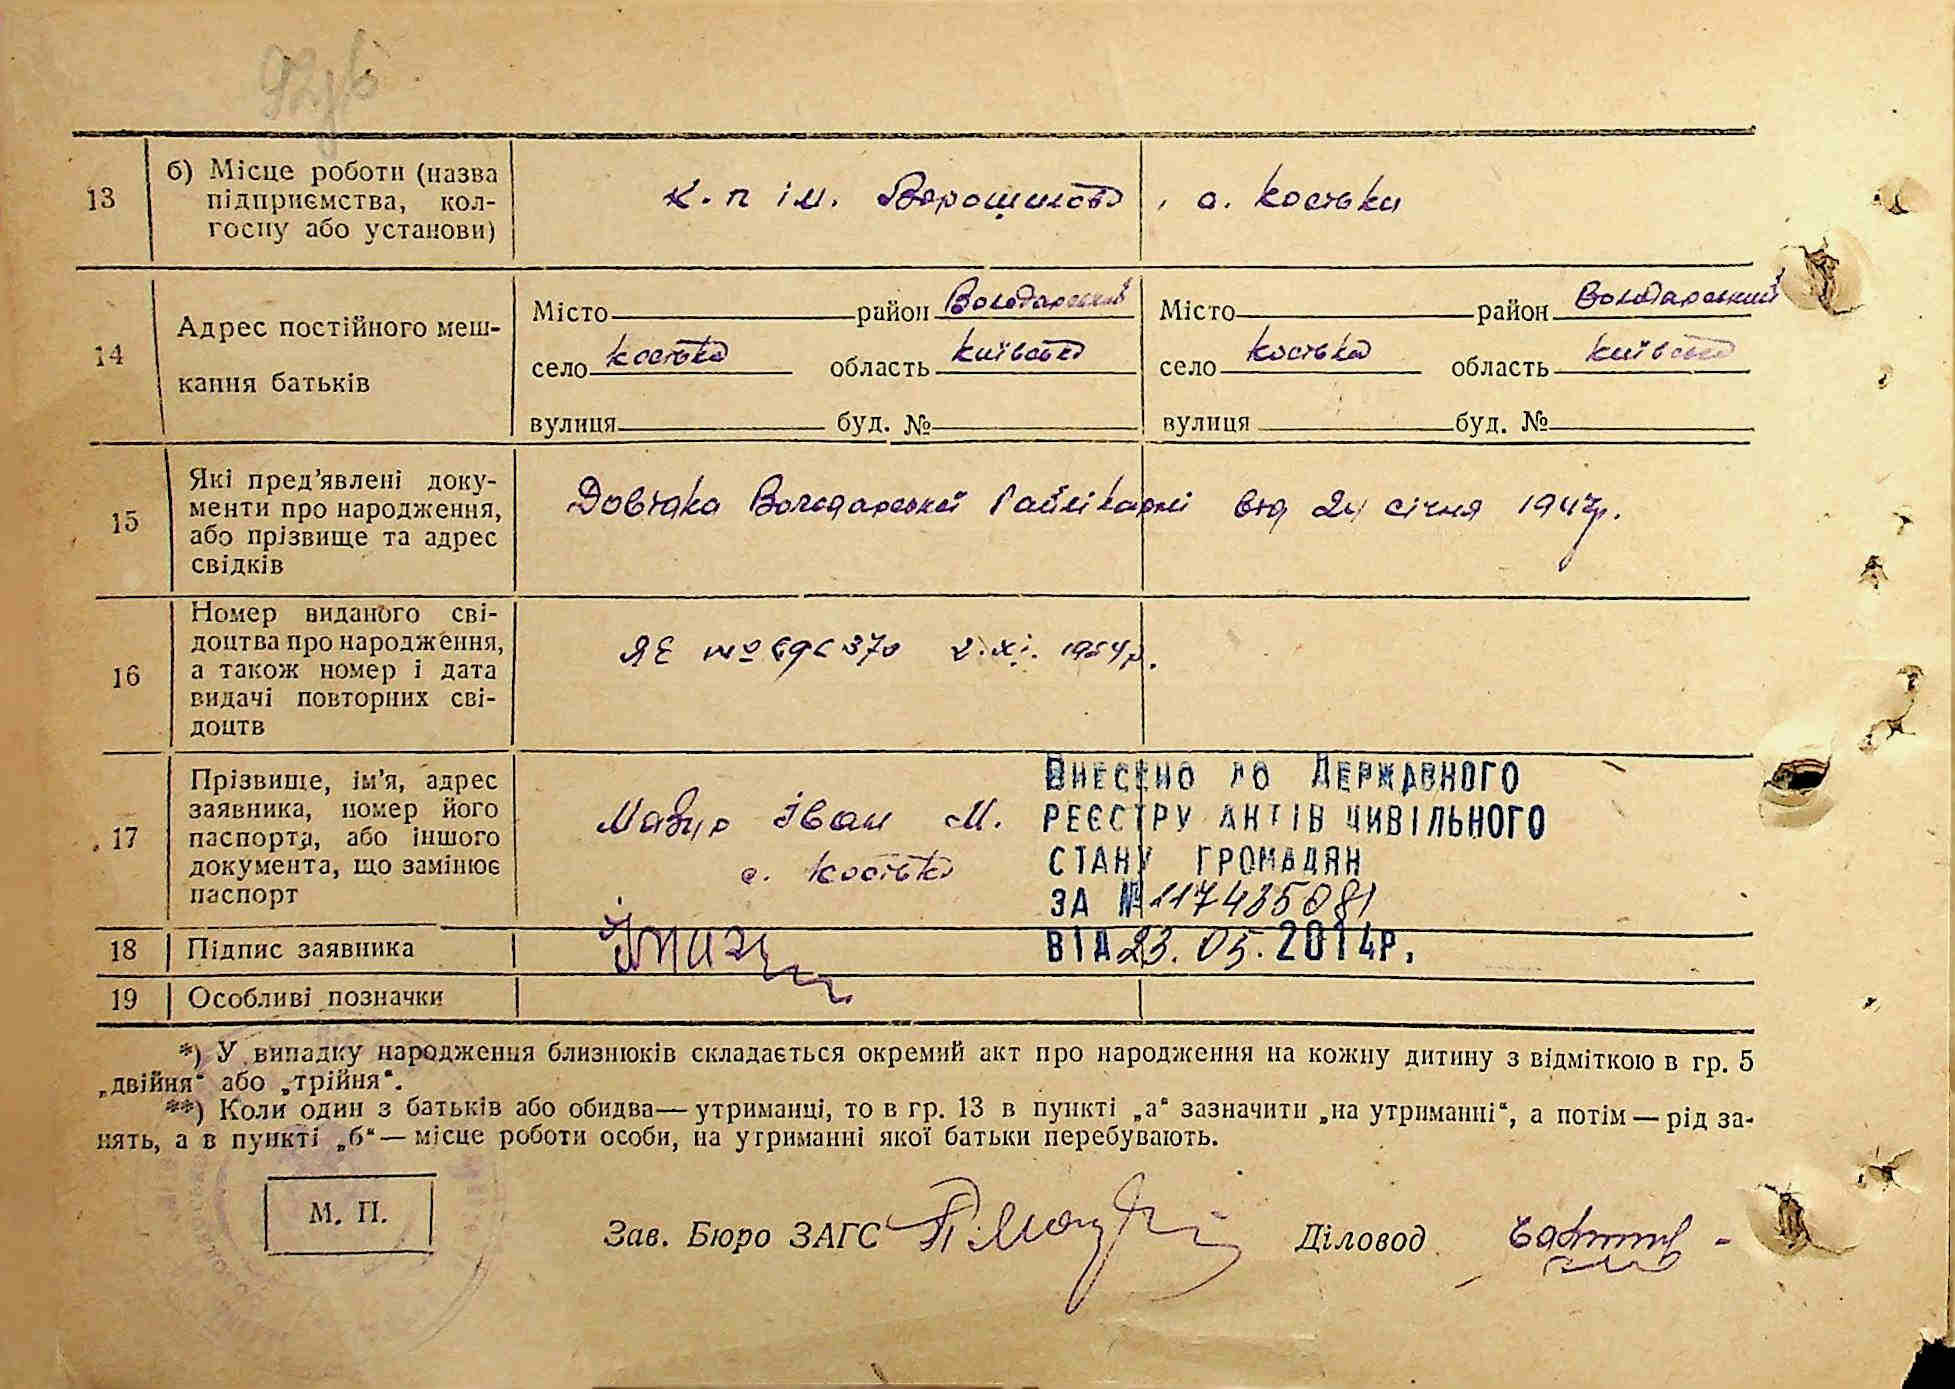 13
б) Місце роботи (назва
підприємства, кол-
госпу або установи)
к. п ім. Ворошилова, с. Коськи
14
Адрес постійного меш-
кання батьків
Місто район Володарський
село Коська область Київська
вулиця буд. №
Місто район Володарський
село Коська область Київська
вулиця буд. №
15
Які пред'явлені доку-
менти про народження,
або прізвище та адрес
свідків
Довідка Володарської Райлікарні від 24 січня 1947р.
16
Номер виданого сві-
доцтва про народження,
а також номер і дата
видачі повторних сві-
доцтв
ЯЕ № 370 2.XI. 1954р.
17
Прізвище, ім'я, адрес
заявника, номер його
паспорта, або іншого
документа, що замінює
паспорт
Мазур Іван М.
с. Коська
ВНЕСЕНО ДО ДЕРЖАВНОГО
РЕЄСТРУ АКТІВ ЦИВІЛЬНОГО
СТАНУ ГРОМАДЯН
ЗА № 117435081
ВІД 23.05.2014Р.
18
Підпис заявника
19
Особливі позначки
*) У випадку народження близнюків складається окремий акт про народження на кожну дитину з відміткою в гр. 5
„двійня“ або „трійня“.
**) Коли один з батьків або обидва— утриманці, то в гр. 13 в пункті „а“ зазначити „на утриманні“, а потім — рід за-
нять, а в пункті „б“— місце роботи особи, на утриманні якої батьки перебувають.
М. П.
Зав. Бюро ЗАГС
Діловод